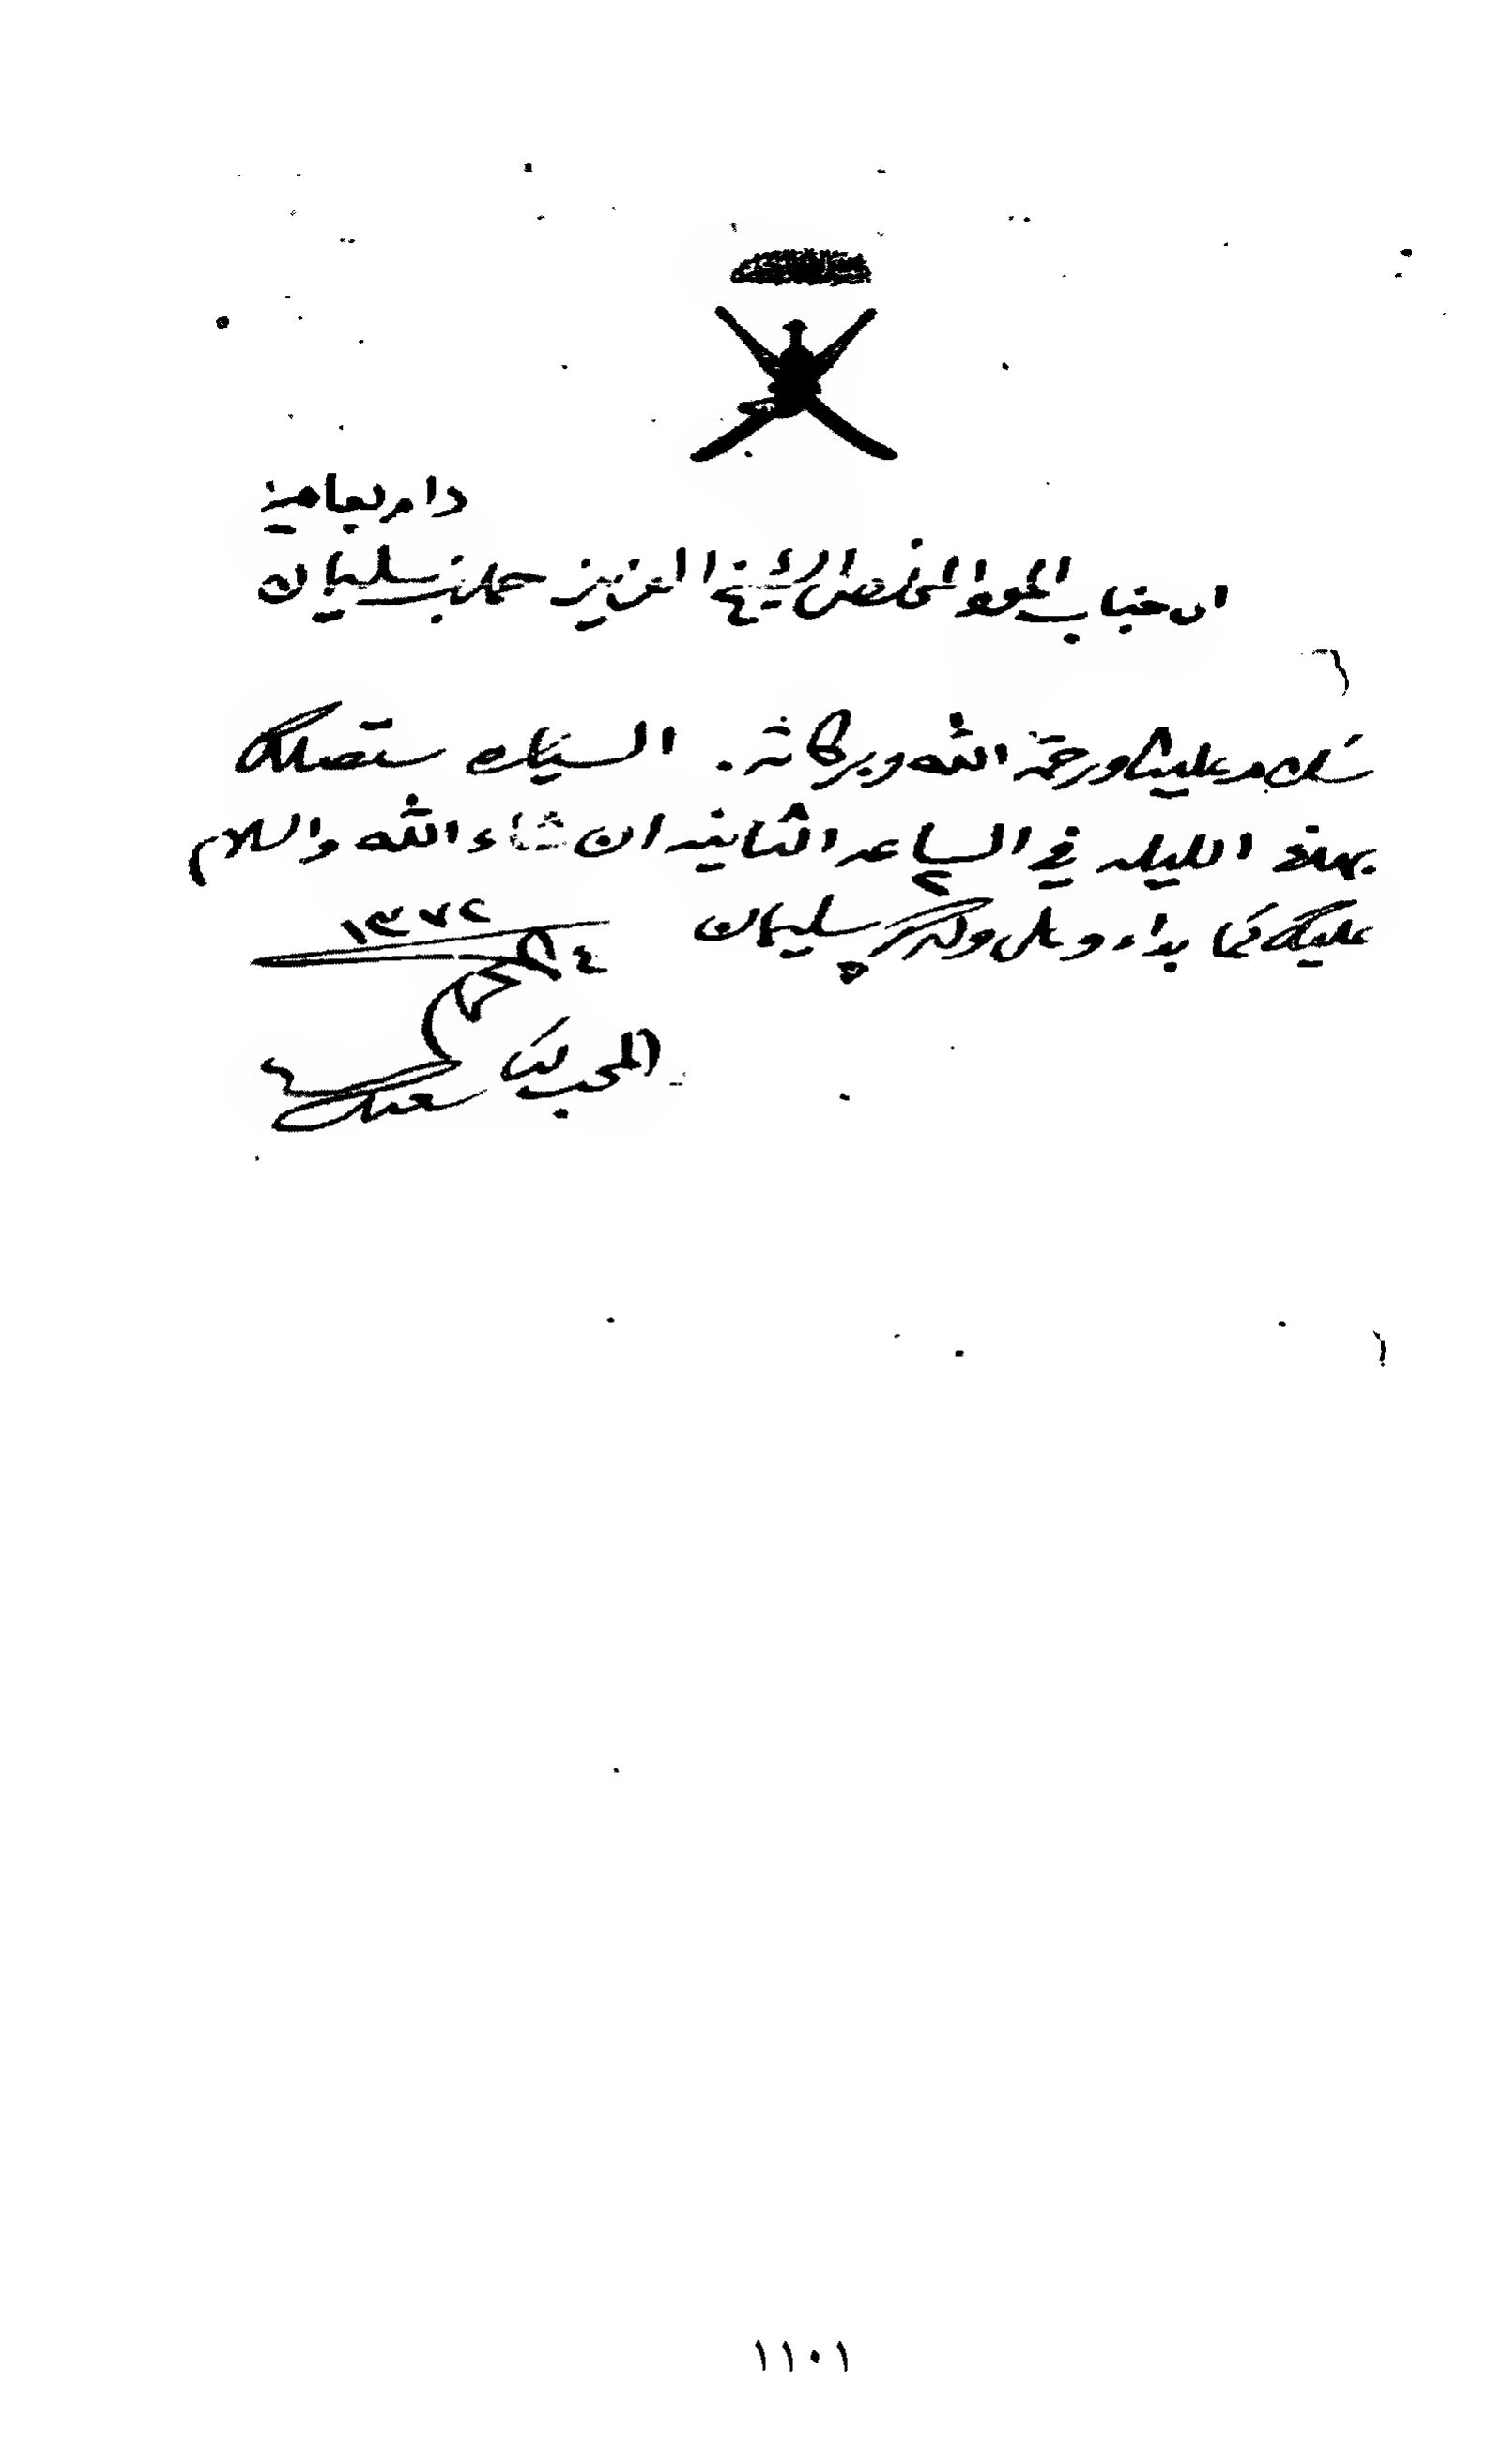 دام بعافية
الى جناب المحب المخلص الشيخ العزيز حمد بن سليمان
سلام عليك ورحمة الله وبركاته. السياره ستصلك
بهذه الليله في الساعه الثانيه ان شاء الله والسلام
عليك كما بداء وعلى ولدك سليمان
١٣٧٢
المحب لك سعيد
١١٠١